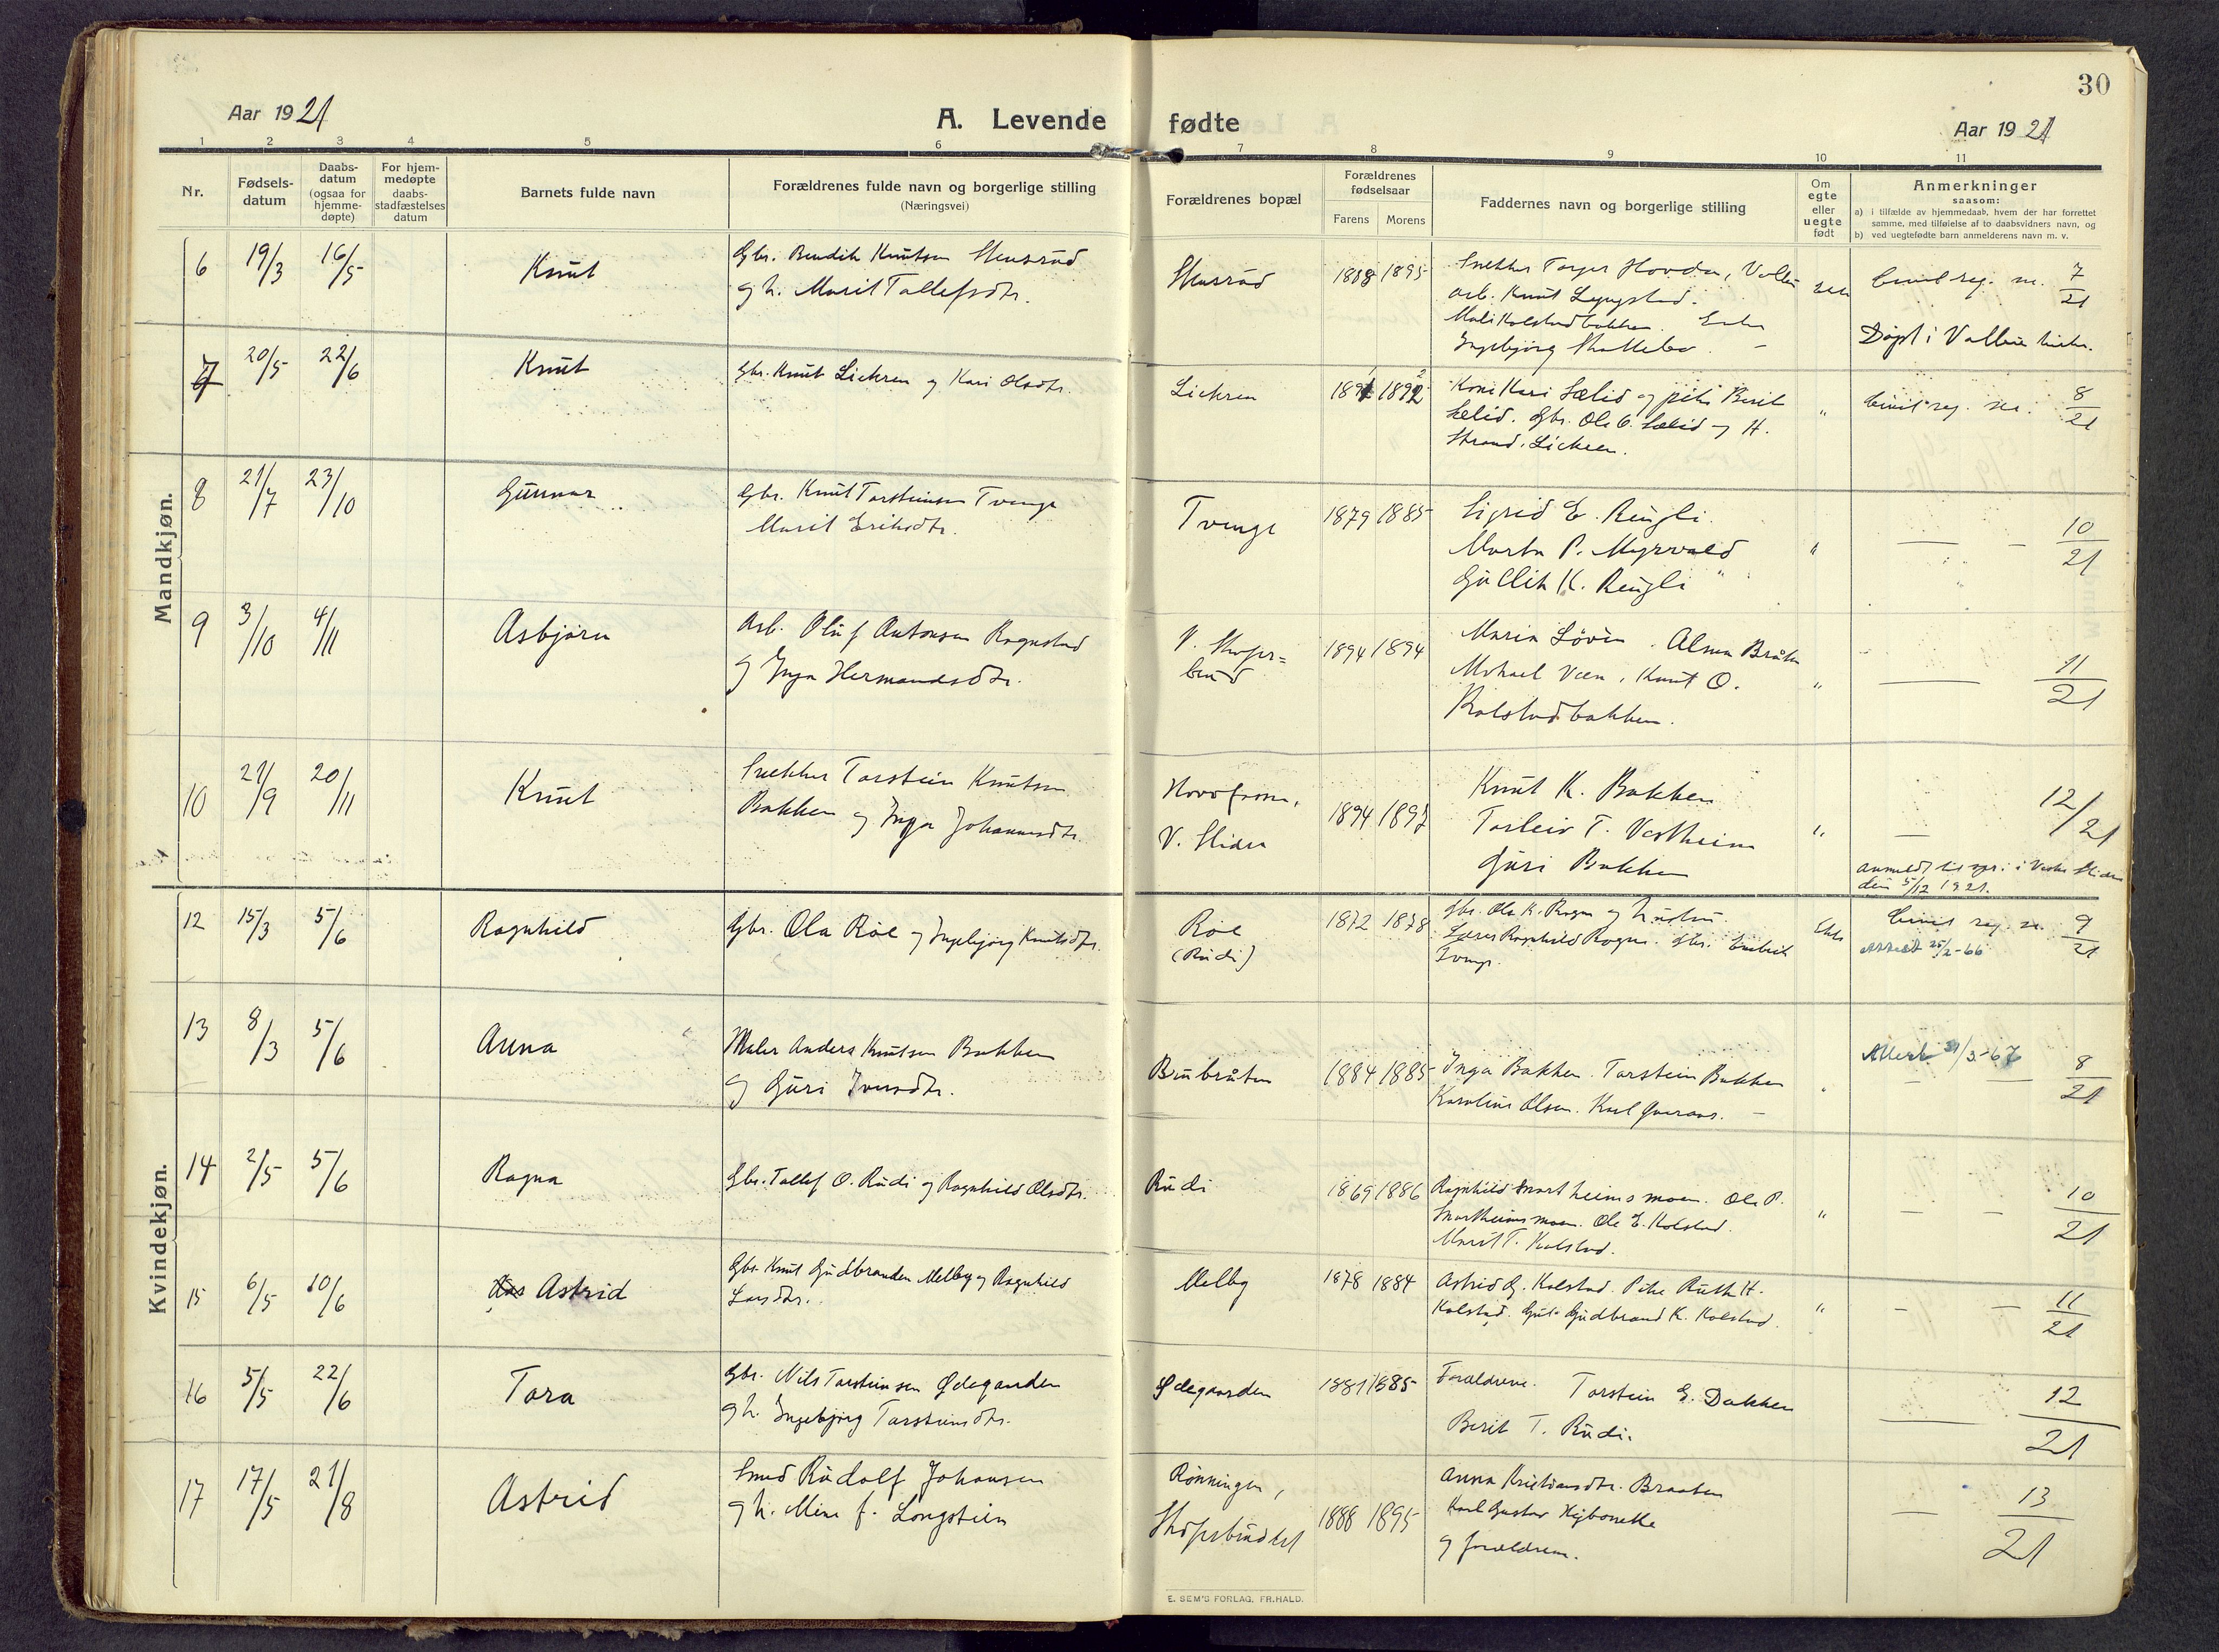 30
Aar 1921
A. Levende fødte
Aar 1921
1 2 3 4 5 6 7 8 9 10 11
Nr.
Fødsels-
datum
Daabs-
datum
(ogsaa for
hjemme-
døpte)
For hjem-
medøpte
daabs-
stadfæstelses
datum
Barnets fulde navn
Forældrenes fulde navn og borgerlige stilling
(Næringsvei)
Forældrenes bopæl
Forældrenes
fødselsaar
Farens Morens
Faddernes navn og borgerlige stilling
Om
egte
eller
uegte
født
Anmerkninger
saasom:
a) i tilfælde av hjemmedaab, hvem der har forrettet
samme, med tilføielse af to daabsvidners navn, og
b) ved uegtefødte barn anmelderens navn m. v.
Mandkjøn.
6 19/3 16/5 Knut
Gbr. Bendik Knutsen Stensrud
og h. Marit Tollefsdtr.
Stensrud
1895
Snekker Torger Hovda,
arb. Knut
Ingebjørg
7/21
Døpt i
7 20/5 22/6 Knut
Gbr. Knut og Kari Olsdtr.
1891 1892
Kone Kari Sælid og pike Berit
Sælid. Gbr. Ole O. Sælid og H.
Strand.
"
Civil reg. nr. 8/21
8 21/7 23/10 Gunnar
Gbr. Knut Torsteinsen Tvenge
Marit Eriksdtr.
Tvenge
1879 1885
Sigrid E. Rengli.
Marta P. Myrvold
Gullik K. Rengli "
"
— - 10/21
9 3/10 4/11 Asbjørn
Arb. Oluf Antonsen Rognstad
og Inga Hermandsdtr.
1894 1894
Maria . Alma Bråten
Mikael , Knut O.
Kolstadbakken.
"
— 11/21
10 21/9 20/11 Knut
Snekker Torstein Knutsen
Bakken og Inga Johannesdtr.
V. Slidre
1894 1897
Knut K. Bakken
Torleiv T. Vestheim
Guri Bakken
"
— 12/21
anmeldt til i Vestre Slidre
den 5/12 1921.
Kvindekjøn.
12 15/3 5/6 Ragnhild
Gbr. Ola Røe og Ingebjørg Knutsdtr.
Røe
(Rudi)
1872 1878
Gbr. Ola K. Rogne og hustru.
Ragnhild Rogne. Gbr.
Ekte
Civil reg. nr. 9/21
Attest 25/2-66
13 8/3 5/6 Anna
Maler Anders Knutsen Bakken
og Guri Iversdtr.
Brubråten
1884 1885
Inga Bakken. Torstein Bakken
Karoline Olsen. Karl —
Attest 31/3-67
— — 8/21
14 2/5 5/6 Ragna
Gbr. Tollef O. Rudi og Ragnhild Olsdtr.
Rudi
1869 1886
Ragnhild Snortheimsmoen. Ole P.
Snortheimsmoen. Ole E. Kolstad.
Marit T. Kolstad.
"
— - 10/21
15 6/5 10/6 Astrid
Gbr. Knut Gudbranden Melby og Ragnhild
Larsdtr.
Melby
1878 1884
Astrid G. Kolstad. Pike Ruth H.
Kolstad. Gut Gudbrand K. Kolstad.
"
- — 11/21
16 5/5 22/6 Tora
Gbr. Nils Torsteinsen Ødegaarden
og h. Ingebjørg Torsteinsdtr.
Ødegaarden
1881 1885
Forældrene. Torstein E. Bakken
Berit T. Rudi.
— 12/21
17 17/5 21/8 Astrid
Smed Rudolf Johansen
og h. Mina f. Longstien
Rønningen,
1888 1895
Anna Kristiansdtr. Braaten
Karl Gustav
og forældrene.
— 13/21
E. SEM'S FORLAG. FR.HALD.